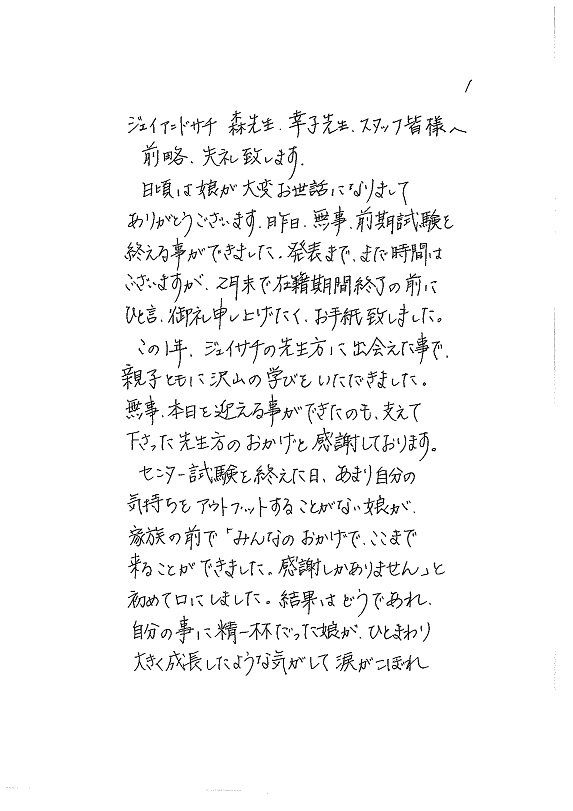 1
ジェイアンドサチ 森先生、幸子先生、スタッフ皆様へ
前略、失礼致します。
日頃は娘が大変お世話になりまして
ありがとうございます。昨日、無事、前期試験を
終える事ができました。発表まで、まだ時間は
ございますが、2月末で在籍期間終了の前に
ひと言、御礼申し上げたく、お手紙致しました。
この1年、ジェイサチの先生方に出会えた事で、
親子ともに沢山の学びをいただきました。
無事、本日を迎える事ができたのも、支えて
下さった先生方のおかげと感謝しております。
センター試験を終えた日、あまり自分の
気持ちをアウトプットすることがない娘が、
家族の前で「みんなのおかげで、ここまで
来ることができました。感謝しかありません」と
初めて口にしました。結果はどうであれ、
自分の事に精一杯だった娘が、ひとまわり
大きく成長したような気がして涙がこぼれ